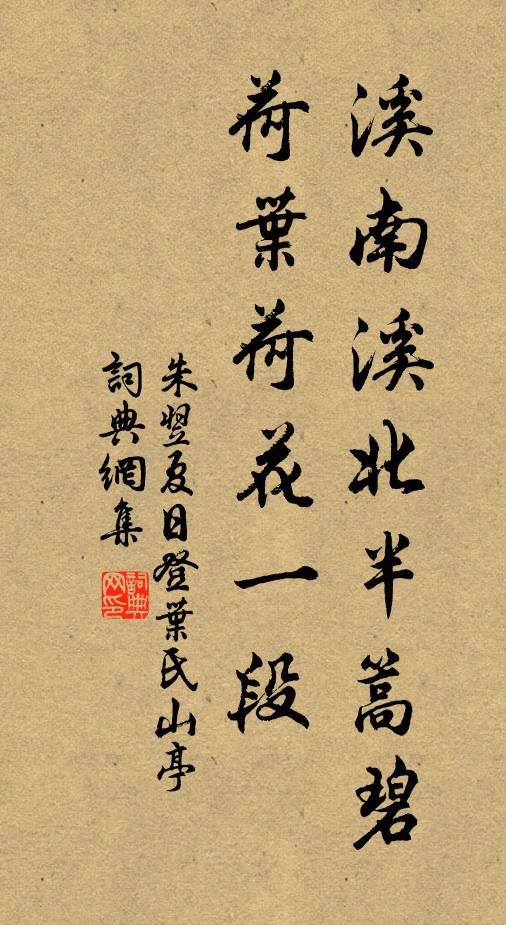 溪南溪北半篙碧
荷葉荷花一段
朱翌夏日登葉氏山亭
詞典網集
詞典
网印